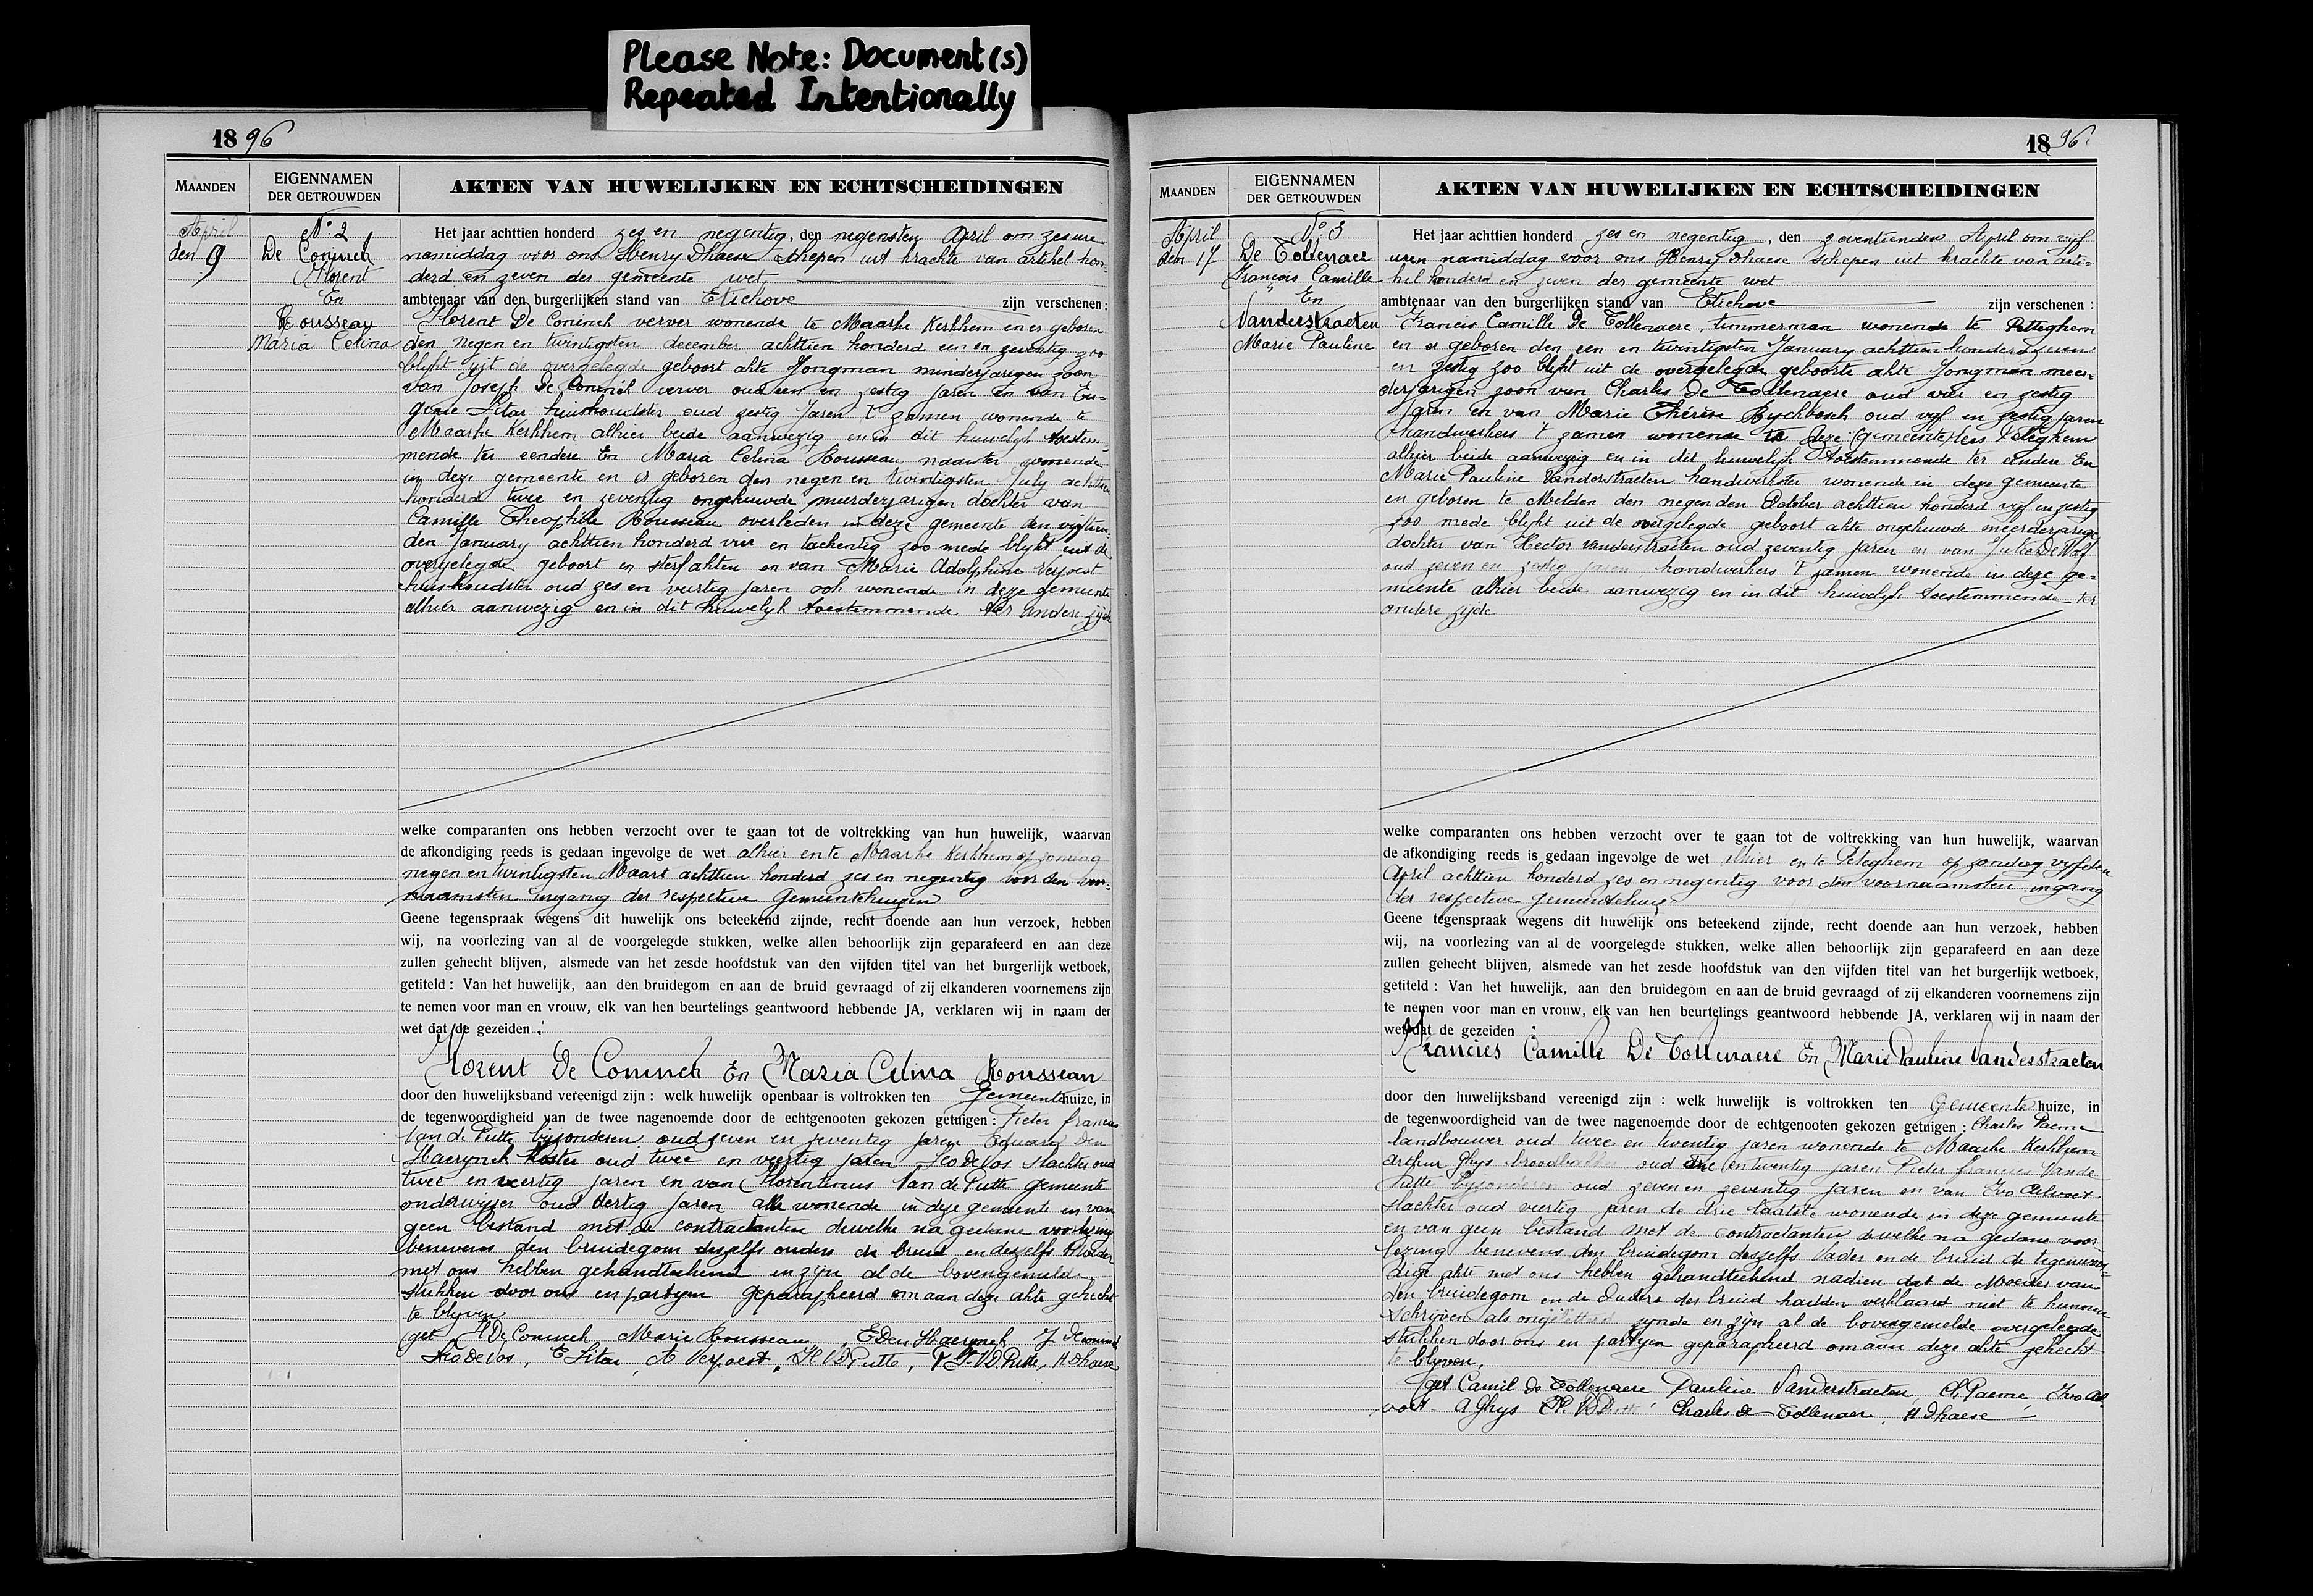 Please Note: Document(s)
Repeated Intentionally
1896
MAANDEN
EIGENNAMEN
DER GETROUWDEN
AKTEN VAN HUWELIJKEN EN ECHTSCHEIDINGEN
April
den 9
N° 2
De Coninck
Florent
En
Rousseau
Maria Celina
Het jaar achttien honderd zes en negentig, den negensten April om zes ure
namiddag voor ons Henry Dhaese schepen uit krachte van artikel hon-
derd en zeven der gemeente wet
ambtenaar van den burgerlijken stand van Etichove zijn verschenen :
Florent De Coninck verver wonende te Maarke Kerkhem en er geboren
den negen en twintigsten december achttien honderd een en zeventig zoo
blykt uit de overgelegde geboort akte Jongman minderjarigen zoon
van Joseph De Coninck verver oud een en zestig jaren en van Eu-
genie Sitar huishoudster oud zestig Jaren t' zamen wonende te
Maarke Kerkhem alhier beide aanwezig en in dit huwelyk toestem-
mende ter eendere En Maria Celina Rousseau naaister wonende
in deze gemeente en er geboren den negen en twintigsten July achttien
honderd twee en zeventig ongehuwde meerderjarigen dochter van
Camille Theophile Rousseau overleden in deze gemeente den vyftien-
den January achttien honderd vier en tachentig zoo mede blykt uit de
overgelegde geboort en sterfakten en van Marie Adolphine Verpoest
huishoudster oud zes en veertig jaren ook wonende in deze gemeente
alhier aanwezig en in dit huwelyk toestemmende ter andere zijde
welke comparanten ons hebben verzocht over te gaan tot de voltrekking van hun huwelijk, waarvan
de afkondiging reeds is gedaan ingevolge de wet alhier en te Maarke Kerkhem op zondag
negen en twintigsten Maart achttien honderd zes en negentig voor den voor-
naamsten ingang der respective Gemeentehuizen
Geene tegenspraak wegens dit huwelijk ons beteekend zijnde, recht doende aan hun verzoek, hebben
wij, na voorlezing van al de voorgelegde stukken, welke allen behoorlijk zijn geparafeerd en aan deze
zullen gehecht blijven, alsmede van het zesde hoofdstuk van den vijfden titel van het burgerlijk wetboek,
getiteld : Van het huwelijk, aan den bruidegom en aan de bruid gevraagd of zij elkanderen voornemens zijn
te nemen voor man en vrouw, elk van hen beurtelings geantwoord hebbende JA, verklaren wij in naam der
wet dat de gezeiden :
Florent De Coninck En Maria Celina Rousseau
door den huwelijksband vereenigd zijn : welk huwelijk openbaar is voltrokken ten Gemeentehuize, in
de tegenwoordigheid van de twee nagenoemde door de echtgenooten gekozen getuigen : Pieter francies
Van de Putte byzonderen oud zeven en zeventig jaren Eduard Den
Haerynck Koster oud twee en veertig jaren Leo de Vos slachter oud
twee en veertig jaren en van Florentinus Van de Putte gemeente
onderwijzer oud dertig jaren alle wonende in deze gemeente en van
geen bestand met de contractanten dewelke na gedane voorlezing
benevens den bruidegom deszelfs ouders de bruid en deszelfs Moeder
met ons hebben gehandteekend en zyn al de bovengemelde
stukken door ons en partyen geparapheerd om aan deze akte gehecht
te blyven
get F De Coninck Marie Rousseau E Den Haerynck J Deconinck
Leo de Vos, E Sitar, A Verpoest, Fl VD Putte, P F VD Putte, H Dhaese
1896
MAANDEN
EIGENNAMEN
DER GETROUWDEN
AKTEN VAN HUWELIJKEN EN ECHTSCHEIDINGEN
April
den 17
N° 3
De Tollenaer
François Camille
En
Vanderstraeten
Marie Pauline
Het jaar achttien honderd zes en negentig, den zeventienden April om vijf
uren namiddag voor ons Henry Dhaese schepen uit krachte van arti-
kel honderd en zeven der gemeente wet
ambtenaar van den burgerlijken stand van Etichove zijn verschenen :
Francies Camille De Tollenaere, timmerman wonende te Petteghem
en er geboren den een en twintigsten January achttien honderd zeven
en zestig zoo blykt uit de overgelegde geboorte akte Jongman meer-
derjarigen zoon van Charles De Tollenaere oud vier en zestig
jaren en van Marie Therese Byckbosch oud vyf en zestig jaren
handwerkers t' zamen wonende te Peteghem
alhier beide aanwezig en in dit huwelijk toestemmende ter eendere En
Marie Pauline Vanderstraeten handwerkster wonende in deze gemeente
en geboren te Melden den negenden October achttien honderd vijf en zestig
zoo mede blykt uit de overgelegde geboort akte ongehuwde meerderjarige
dochter van Hector Vanderstraeten oud zeventig jaren en van Julie De Wolf
oud zeven en zestig jaren handwerkers t' zamen wonende in deze ge-
meente alhier beide aanwezig en in dit huwelyk toestemmende ter
andere zyde
welke comparanten ons hebben verzocht over te gaan tot de voltrekking van hun huwelijk, waarvan
de afkondiging reeds is gedaan ingevolge de wet alhier en te Peteghem op zondag vyfden
April achttien honderd zes en negentig voor den voornaamsten ingang
der respective gemeentehuize
Geene tegenspraak wegens dit huwelijk ons beteekend zijnde, recht doende aan hun verzoek, hebben
wij, na voorlezing van al de voorgelegde stukken, welke allen behoorlijk zijn geparafeerd en aan deze
zullen gehecht blijven, alsmede van het zesde hoofdstuk van den vijfden titel van het burgerlijk wetboek,
getiteld : Van het huwelijk, aan den bruidegom en aan de bruid gevraagd of zij elkanderen voornemens zijn
te nemen voor man en vrouw, elk van hen beurtelings geantwoord hebbende JA, verklaren wij in naam der
wet dat de gezeiden :
Francies Camille De Tollenaere En Marie Pauline Vanderstraeten
door den huwelijksband vereenigd zijn : welk huwelijk is voltrokken ten Gemeentehuize, in
de tegenwoordigheid van de twee nagenoemde door de echtgenooten gekozen getuigen : Charles Paeme
landbouwer oud twee en twentig jaren wonende te Maarke-Kerkhem
Arthur Ghys broodbakker oud drie en twentig jaren Pieter francies Vande
Putte byzonderen oud zeven en zeventig jaren en van Ivo Aelvoet
slachter oud veertig jaren de drie laatste wonende in deze gemeente
en van geen bestand met de contractanten dewelke na gedane voor-
lezing benevens den bruidegom deszelfs Vader en de bruid de tegenwoor-
dige akte met ons hebben gehandteekend nadien dat de Moeder van
den bruidegom en de Ouders der bruid hadden verklaard niet te kunnen
schrijven als ongeletterd zynde en zyn al de bovengemelde overgelegde
stukken door ons en partyen geparapheerd om aan deze akte gehecht
te blyven,
get Camil De Tollenaere Pauline Vanderstraeten, Ch. Paeme Ivo Ael-
voet A Ghys Charles de Tollenaer, H Dhaese